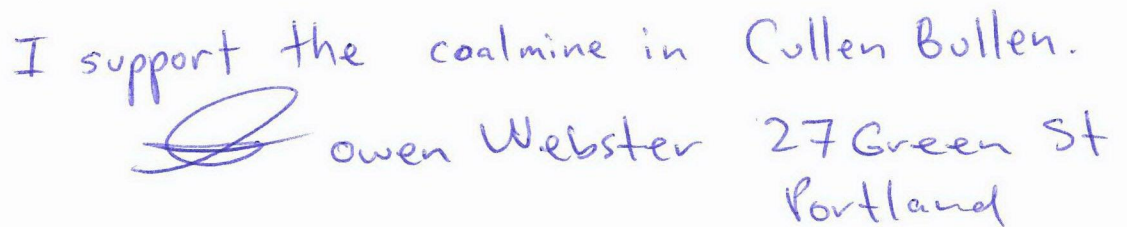 I support the coalmine in Cullen Bullen.
owen Webster 27 Green St
Portland